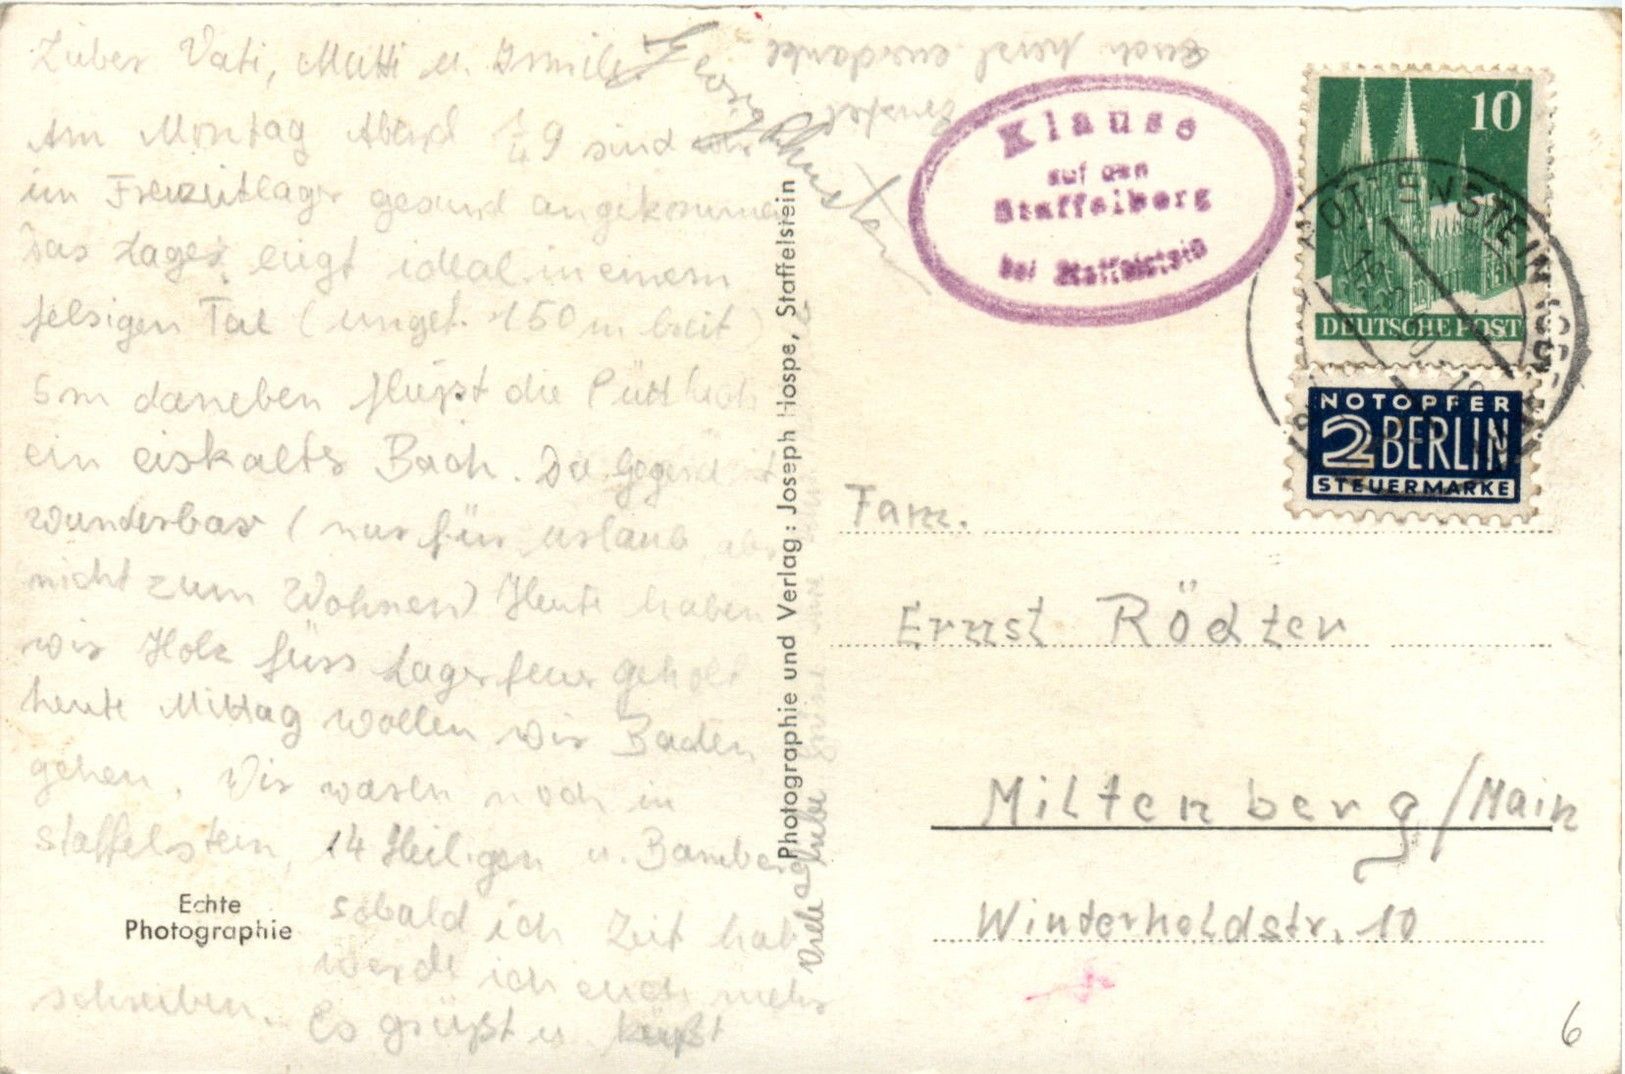 Lieber Vati, Mutti u.
Am Montag Abend ½ 9 sind wir
im Freizeitlager gesund angekommen
Das Lager liegt ideal in einem
felsigen Tal (ungef. 150 m breit)
5m daneben fließt die Püttlach
ein eiskalter Bach. Die Gegend ist
wunderbar (nur für Urlaub, aber
nicht zum Wohnen) Heute haben
wir Holz fürs Lagerfeuer geholt
heute Mittag wollen wir Baden
gehen. Wir waren noch in
Staffelstein, 14 Heiligen u. Bamberg
sobald ich Zeit hab
werde ich euch mehr
schreiben. Es grüßt u. küßt
Echte
Photographie
Photographie und Verlag: Joseph Hospe, Staffelstein
Viele
Klause
auf dem
Staffelberg
bei Staffelstein
10
DEUTSCHE POST
NOTOPFER
2 BERLIN
STEUERMARKE
POTTENSTEIN
Fam.
Ernst Rödter
Miltenberg/Main
Winterheldstr. 10
6